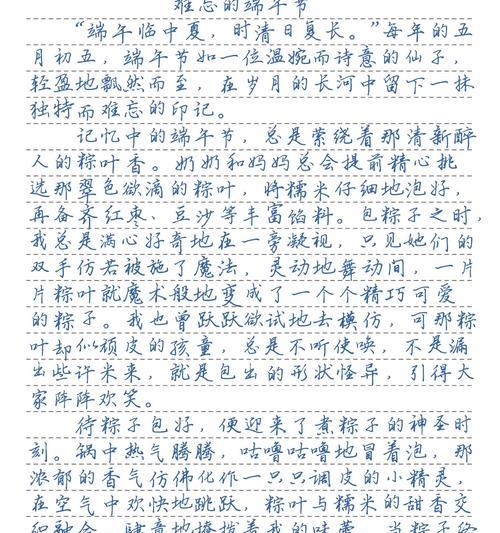 难忘的端午节
“端午临中夏，时清日复长。”每年的五
月初五，端午节如一位温婉而诗意的仙子，
轻盈地飘然而至，在岁月的长河中留下一抹
独特而难忘的印记。
记忆中的端午节，总是萦绕着那清新醉
人的粽叶香。奶奶和妈妈总会提前精心挑
选那翠色欲滴的粽叶，将糯米仔细地泡好，
再备齐红枣、豆沙等丰富馅料。包粽子之时，
我总是满心好奇地在一旁凝视，只见她们的
双手仿若被施了魔法，灵动地舞动间，一片
片粽叶就魔术般地变成了一个个精巧可爱
的粽子。我也曾跃跃欲试地去模仿，可那粽
叶却似顽皮的孩童，总是不听使唤，不是漏
出些许米来，就是包出的形状怪异，引得大
家阵阵欢笑。
待粽子包好，便迎来了煮粽子的神圣时
刻。锅中热气腾腾，咕噜咕噜地冒着泡，那
浓郁的香气仿佛化作一只只调皮的小精灵，
在空气中欢快地跳跃，粽叶与糯米的甜香交
织融合，肆意地撩拨着我的味蕾。当粽子终